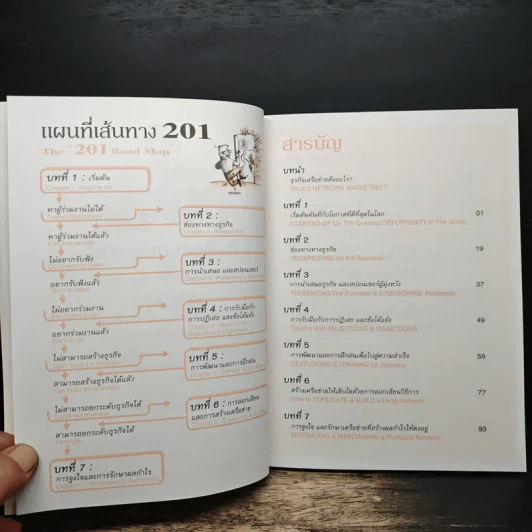 แผนที่เส้นทาง 201
The "201 Road Map"
บทที่ 1 : เริ่มต้น
Chapter 1 : Starting Up
หาผู้ร่วมงานไม่ได้
หาผู้ร่วมงานได้แล้ว
บทที่ 2 :
ช่องทางทางธุรกิจ
Chapter 2 : Prospecting
ไม่อยากรับฟัง
อยากรับฟังแล้ว
บทที่ 3 :
การนำเสนอ และสปอนเซอร์
ไม่อยากร่วมงาน
อยากร่วมงานแล้ว
บทที่ 4 : การรับมือกับ
การปฏิเสธ และข้อโต้แย้ง
ไม่สามารถสร้างธุรกิจ
สามารถสร้างธุรกิจได้แล้ว
บทที่ 5 :
การพัฒนาและการฝึกฝน
ไม่สามารถยกระดับธุรกิจได้
สามารถยกระดับธุรกิจได้
บทที่ 6 : การลอกเลียน
และการสร้างเครือข่าย
บทที่ 7 :
การจูงใจและการรักษาผลกำไร
สารบัญ
บทนำ
ธุรกิจเครือข่ายคืออะไร?
What is NETWORK MARKETING ?
บทที่ 1
เริ่มต้นทันทีกับโอกาสที่ดีที่สุดในโลก 01
STARTING UP On The Greatest OPPORTUNITY In The World
บทที่ 2
ช่องทางทางธุรกิจ 19
PROSPECTING for the Business
บทที่ 3
การนำเสนอธุรกิจ และสปอนเซอร์ผู้มุ่งหวัง 37
PRESENTING The Business & SPONSORING Prospects
บทที่ 4
การรับมือกับการปฏิเสธ และข้อโต้แย้ง 49
Dealing With REJECTIONS & OBJECTIONS
บทที่ 5
การพัฒนาและการฝึกฝนเพื่อไปสู่ความสำเร็จ 59
DEVELOPING & TRAINING for Success
บทที่ 6
สร้างเครือข่ายให้เติบโตด้วยการลอกเลียนวิธีการ 77
How to DUPLICATE & BUILD a Large Network
บทที่ 7
การจูงใจ และรักษาเครือข่ายที่สร้างผลกำไรให้คงอยู่ 93
MOTIVATING & MAINTAINING a Profitable Network